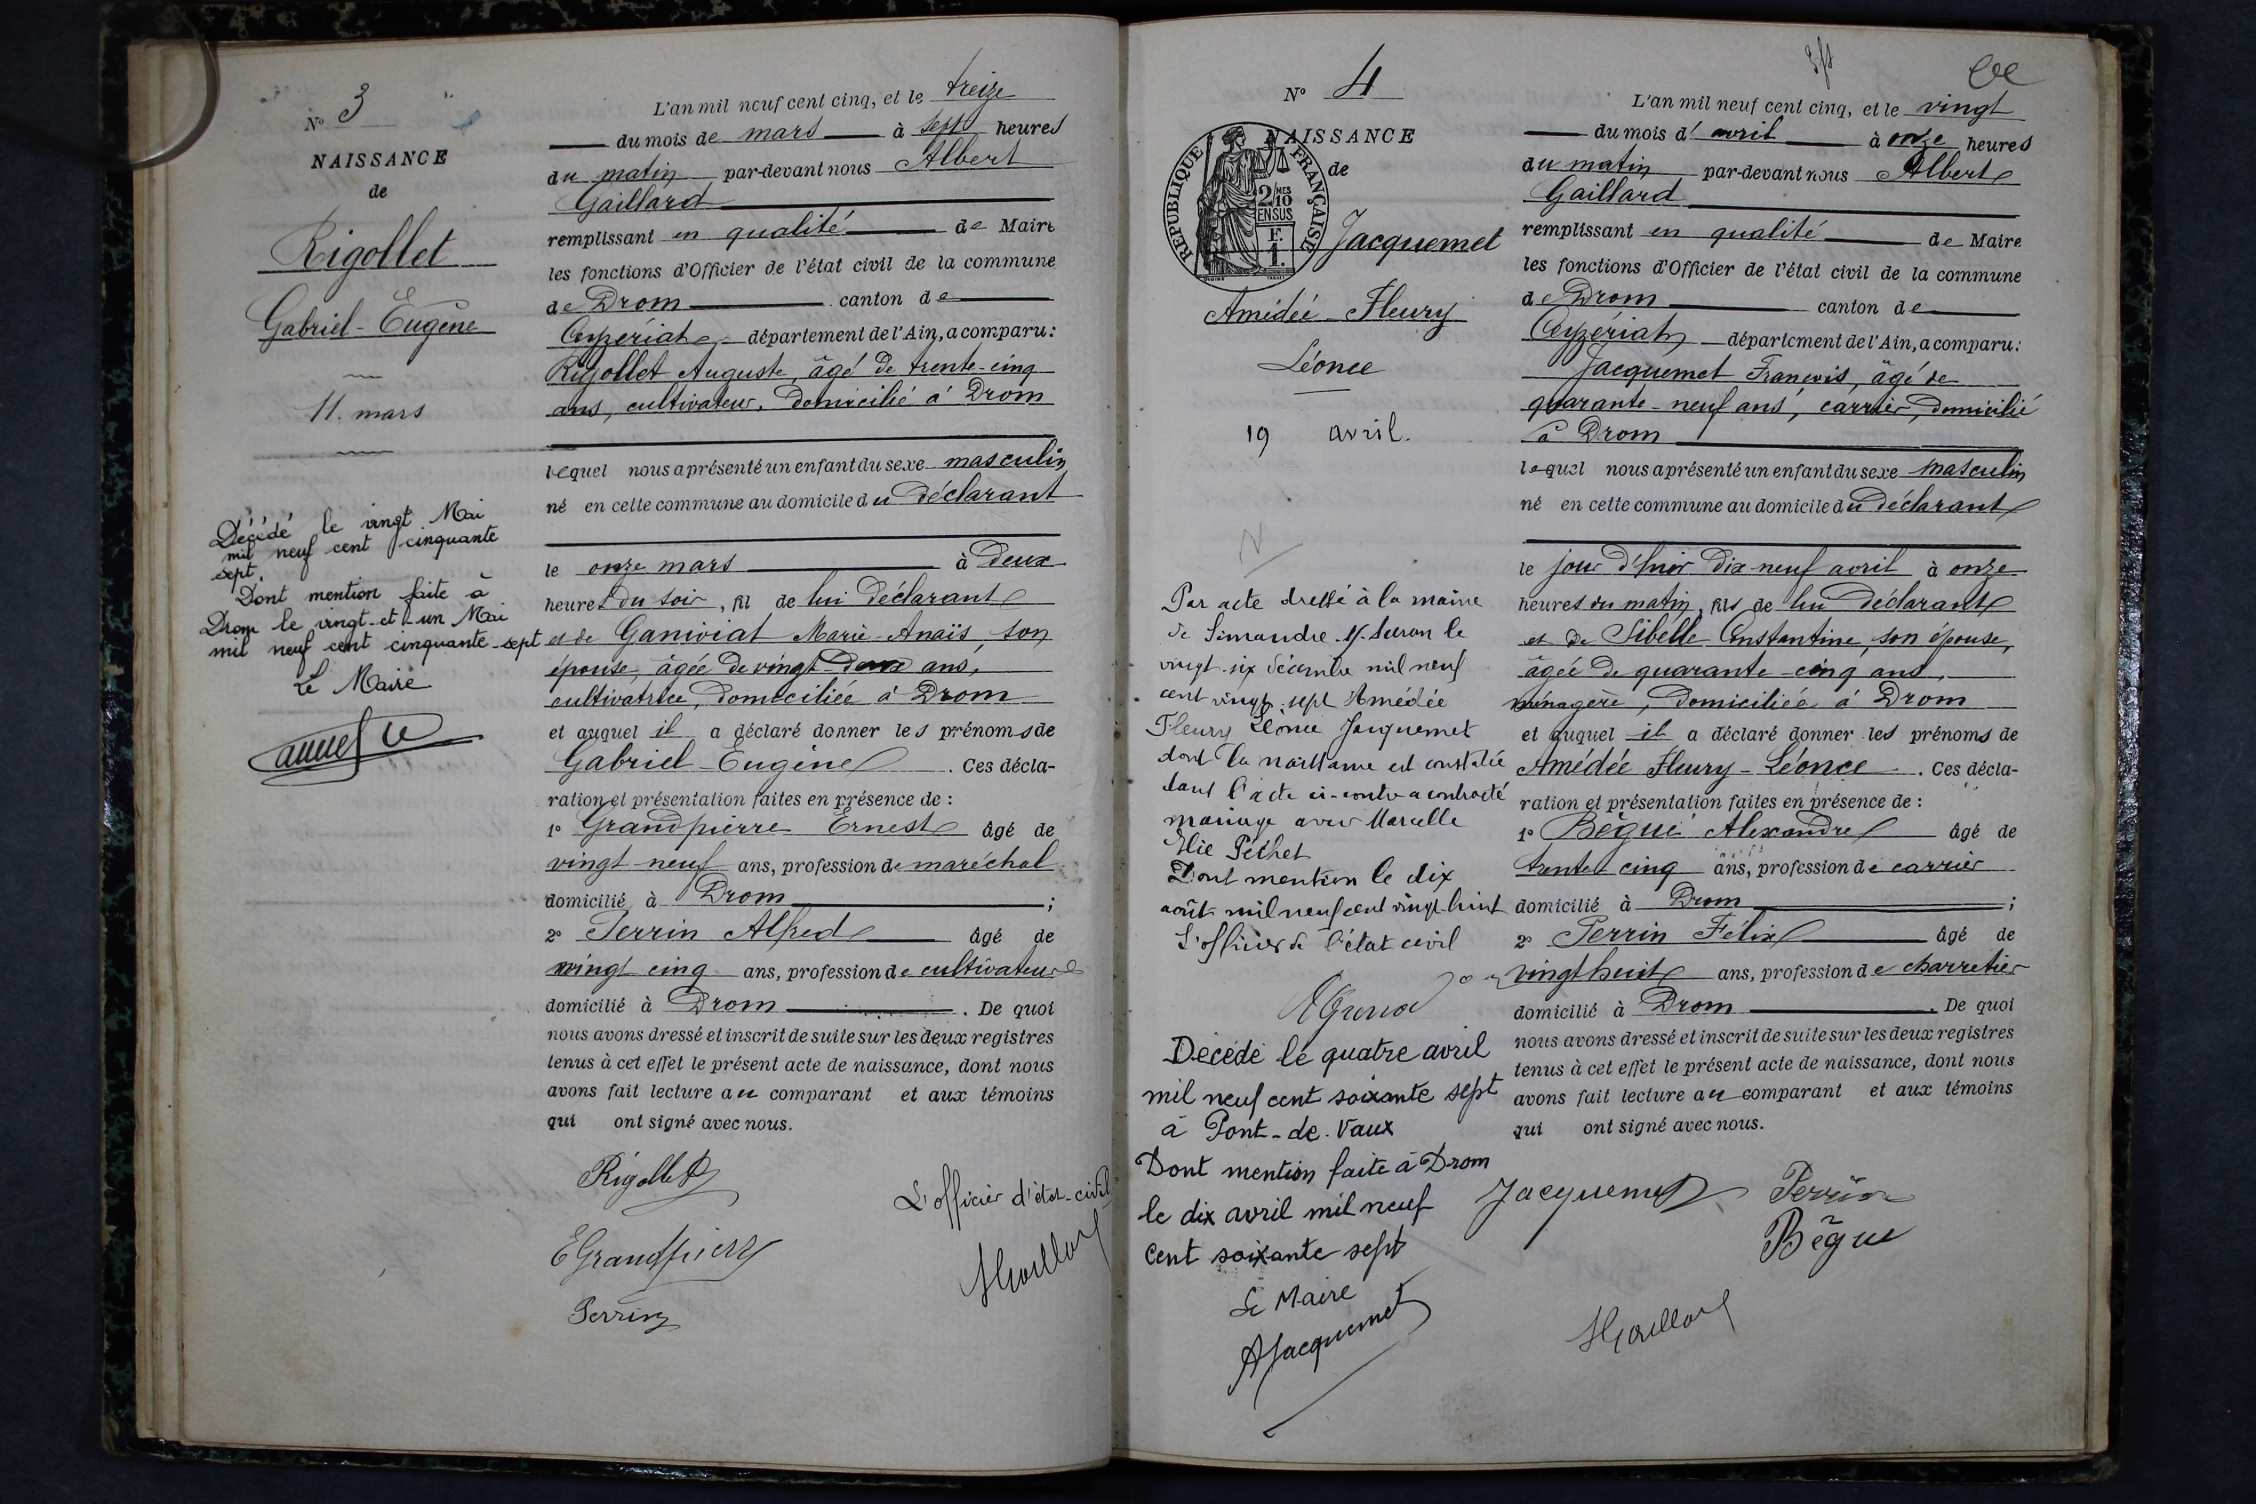 Nº 3
NAISSANCE
de
Rigollet
Gabriel-Eugène
11. mars
Décédé le vingt Mai
mil neuf cent cinquante
sept.
Dont mention faite à
Drom le vingt-et-un Mai
mil neuf cent cinquante-sept
Le Maire
L'an mil neuf cent cinq, et le treize
du mois de mars à sept heures
du matin par-devant nous Albert
Gaillard
remplissant en qualité de Maire
les fonctions d'Officier de l'état civil de la commune
de Drom canton de
Ceyzériat département de l'Ain, a comparu:
Rigollet Auguste, âgé de trente-cinq
ans, cultivateur, domicilié à Drom
lequel nous a présenté un enfant du sexe masculin
né en cette commune au domicile du déclarant
le onze mars à deux
heures du soir, fils de lui déclarant
et de Ganiviat Marie-Anaïs, son
épouse, âgée de vingt-deux ans,
cultivatrice, domiciliée à Drom
et auquel il a déclaré donner les prénoms de
Gabriel-Eugène. Ces décla-
ration et présentation faites en présence de :
1º Grandpierre Ernest âgé de
vingt-neuf ans, profession de maréchal
domicilié à Drom ;
2º Perrin Alfred âgé de
vingt cinq ans, profession de cultivateur
domicilié à Drom. De quoi
nous avons dressé et inscrit de suite sur les deux registres
tenus à cet effet le présent acte de naissance, dont nous
avons fait lecture au comparant et aux témoins
qui ont signé avec nous.
Rigollet
L'officier d'état-civil
EGrandpierre
AGaillard
Perrin
Nº 4
NAISSANCE
de
RÉPUBLIQUE FRANÇAISE
2/10
EN SUS
Jacquemet
Amédée-Fleury
Léonce
19 avril.
Par acte dressé à la mairie
de Simandre-s/-Suran le
vingt-six décembre mil neuf
cent vingt-sept Amédée
Fleury Léonce Jacquemet
dont la naissance est constatée
dans l'acte ci-contre a contracté
mariage avec Marcelle
Elie Pechet
Dont mention le dix
août mil neuf cent vingt huit
L'officier de l'état civil
Décédé le quatre avril
mil neuf cent soixante sept
à Pont-de-Vaux
Dont mention faite à Drom
le dix avril mil neuf
cent soixante sept
Le Maire
AJacquemet
L'an mil neuf cent cinq, et le vingt
du mois d'avril à onze heures
du matin par-devant nous Albert
Gaillard
remplissant en qualité de Maire
les fonctions d'Officier de l'état civil de la commune
de Drom canton de
Ceyzériat département de l'Ain, a comparu:
Jacquemet François, âgé de
quarante-neuf ans, carrier, domicilié
à Drom
lequel nous a présenté un enfant du sexe masculin
né en cette commune au domicile du déclarant
le jour d'hier dix-neuf avril à onze
heures du matin, fils de lui déclarant
et de Sibelle Constantine, son épouse,
âgée de quarante-cinq ans,
ménagère, domiciliée à Drom
et auquel il a déclaré donner les prénoms de
Amédée Fleury-Léonce. Ces décla-
ration et présentation faites en présence de :
1º Bégué Alexandre âgé de
trente cinq ans, profession de carrier
domicilié à Drom ;
2º Perrin Félix âgé de
vingt huit ans, profession de charretier
domicilié à Drom. De quoi
nous avons dressé et inscrit de suite sur les deux registres
tenus à cet effet le présent acte de naissance, dont nous
avons fait lecture au comparant et aux témoins
qui ont signé avec nous.
Jacquemet Perrin
Bégue
AGaillard